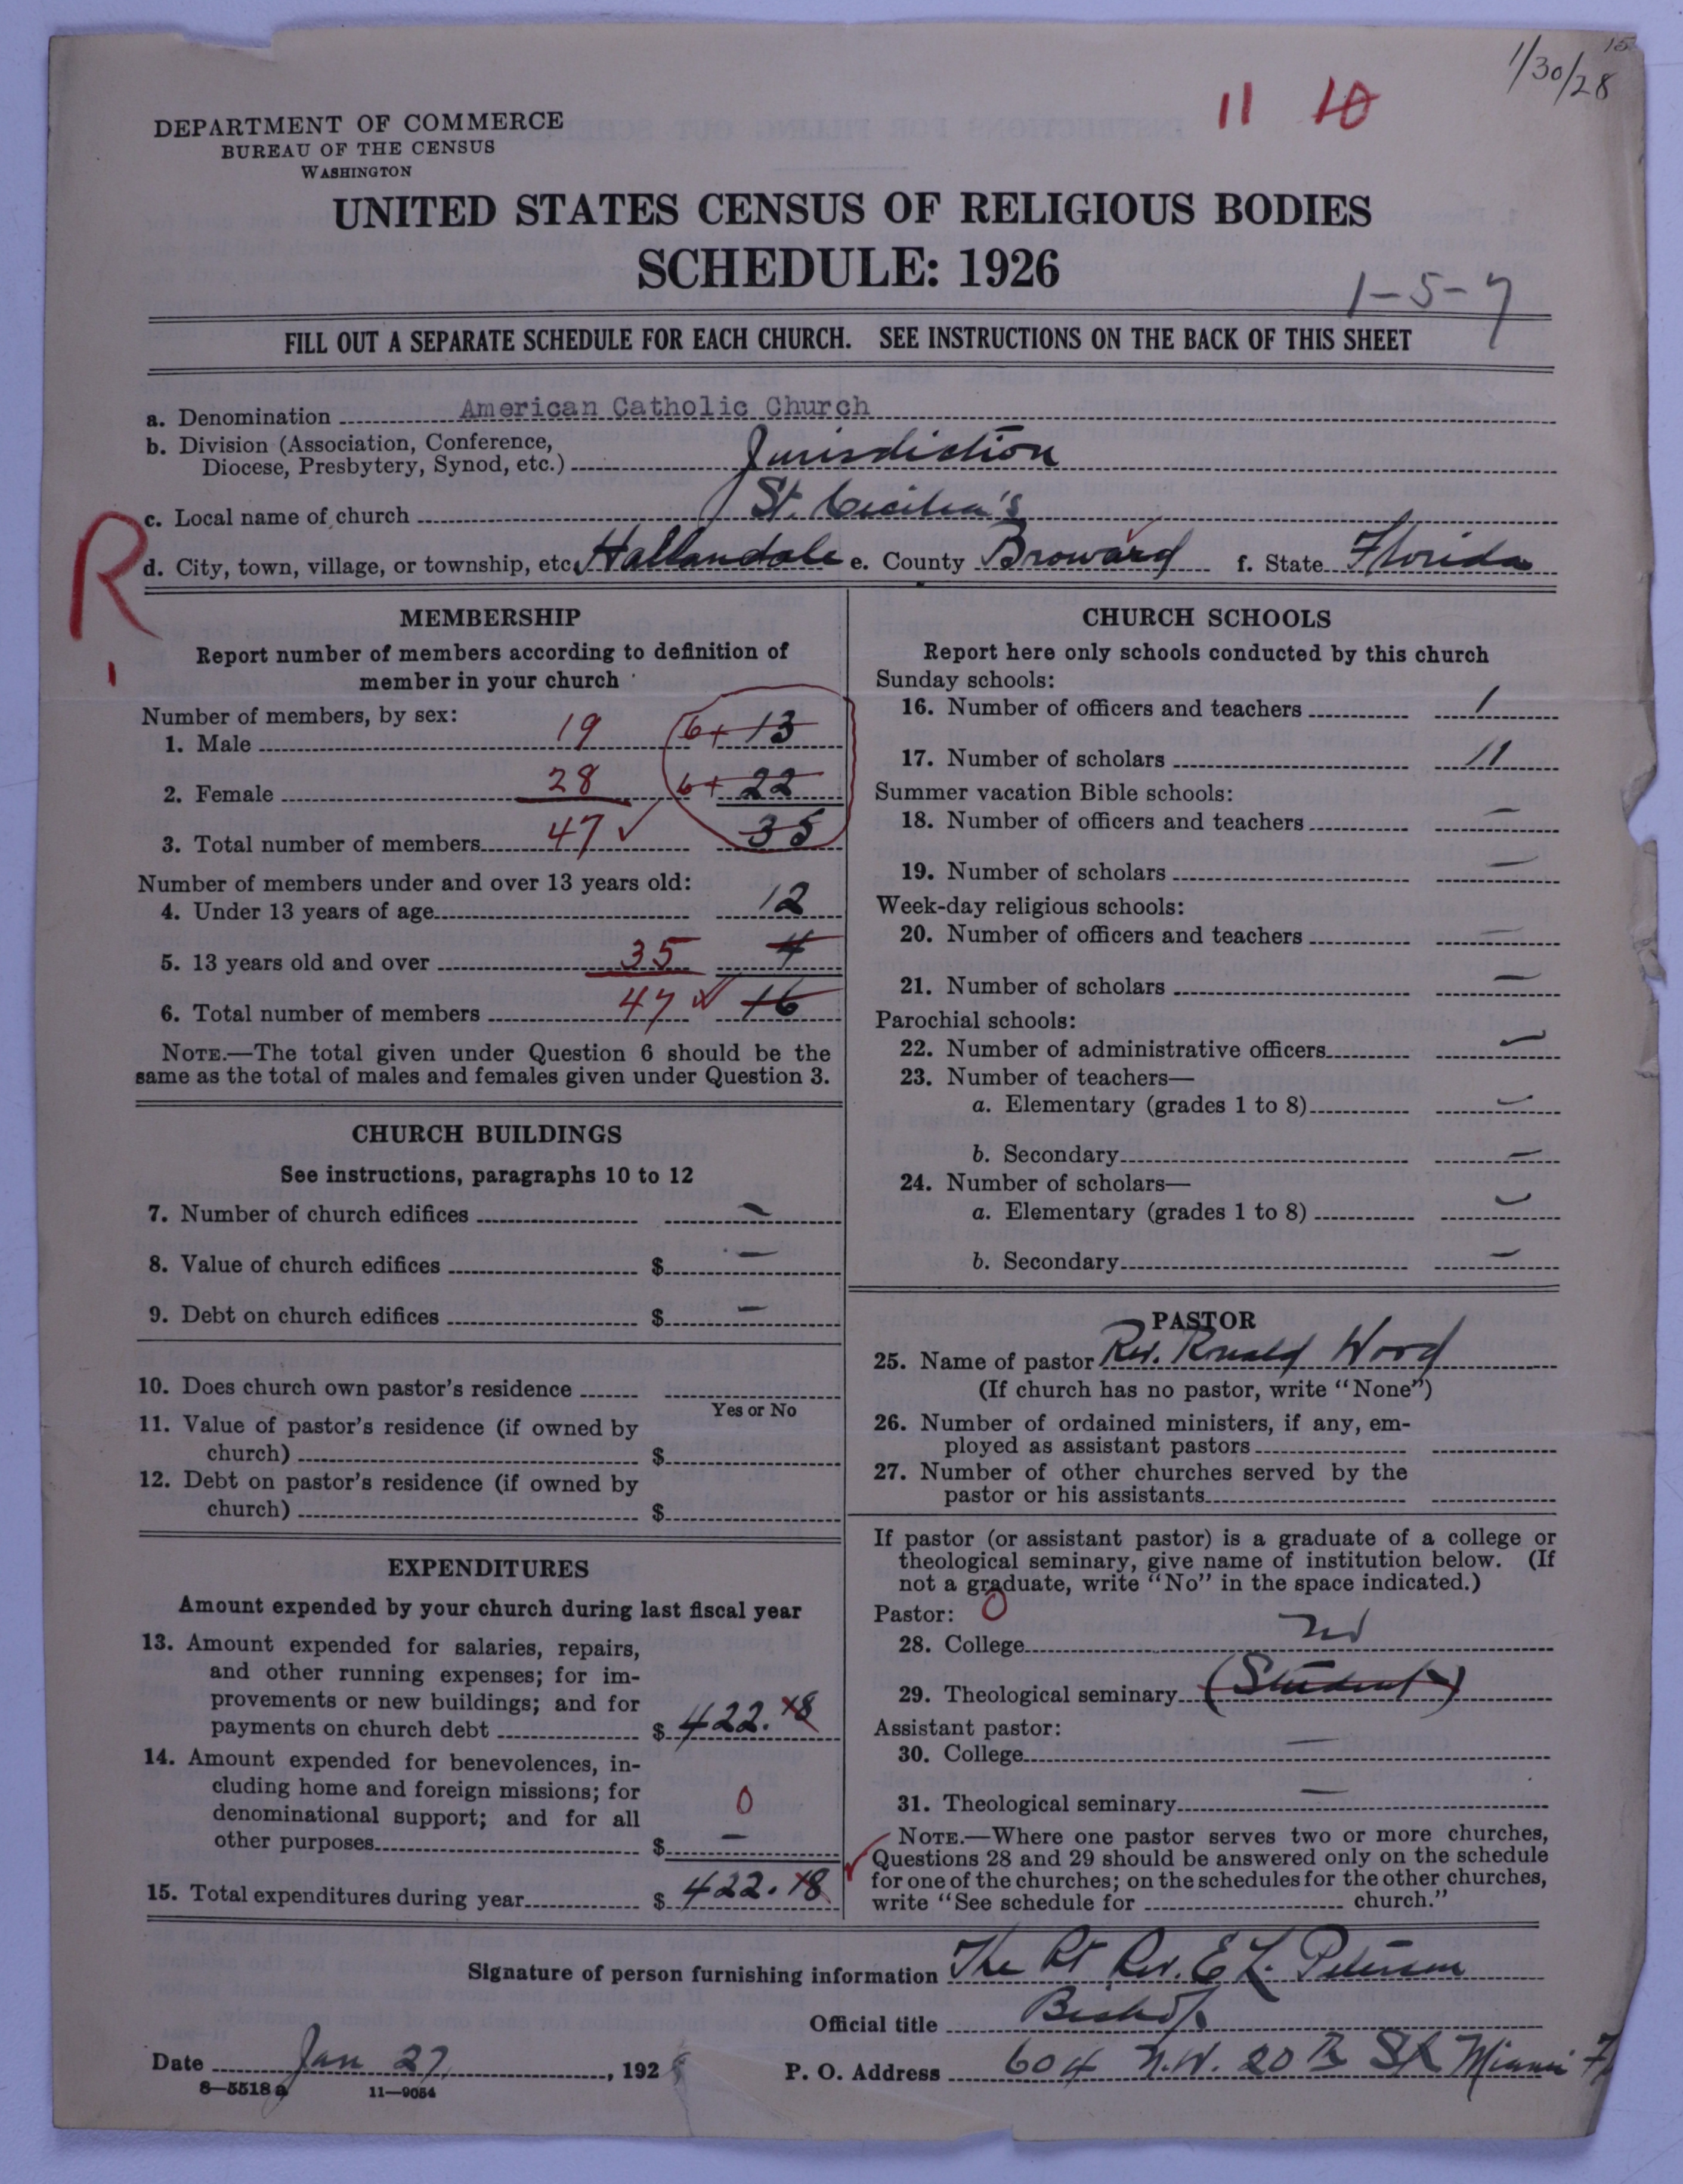 15
1/30/28
11 10
DEPARTMENT OF COMMERCE
BUREAU OF THE CENSUS
WASHINGTON
UNITED STATES CENSUS OF RELIGIOUS BODIES
SCHEDULE: 1926
1-5-7
FILL OUT A SEPARATE SCHEDULE FOR EACH CHURCH. SEE INSTRUCTIONS ON THE BACK OF THIS SHEET
a. Denomination American Catholic Church
b. Division (Association, Conference,
Diocese, Presbytery, Synod, etc.) Jurisdiction
c. Local name of church St. Cecilia's
R
d. City, town, village, or township, etc. Hallandale e. County Broward f. State Florida
MEMBERSHIP
Report number of members according to definition of
member in your church
Number of members, by sex:
1. Male 19 6+ 13
2. Female 28 6+ 22
3. Total number of members 47 ✓ 35
Number of members under and over 13 years old:
4. Under 13 years of age 12
5. 13 years old and over 35 4
6. Total number of members 47 ✓ 16
NOTE.—The total given under Question 6 should be the
same as the total of males and females given under Question 3.
CHURCH BUILDINGS
See instructions, paragraphs 10 to 12
7. Number of church edifices —
8. Value of church edifices $ —
9. Debt on church edifices $ —
10. Does church own pastor's residence
Yes or No
11. Value of pastor's residence (if owned by
church) $
12. Debt on pastor's residence (if owned by
church) $
EXPENDITURES
Amount expended by your church during last fiscal year
13. Amount expended for salaries, repairs,
and other running expenses; for im-
provements or new buildings; and for
payments on church debt $ 422.18
14. Amount expended for benevolences, in-
cluding home and foreign missions; for
denominational support; and for all 0
other purposes $ —
15. Total expenditures during year $ 422.18
CHURCH SCHOOLS
Report here only schools conducted by this church
Sunday schools:
16. Number of officers and teachers 1
17. Number of scholars 11
Summer vacation Bible schools:
18. Number of officers and teachers —
19. Number of scholars —
Week-day religious schools:
20. Number of officers and teachers —
21. Number of scholars —
Parochial schools:
22. Number of administrative officers —
23. Number of teachers—
a. Elementary (grades 1 to 8) —
b. Secondary —
24. Number of scholars—
a. Elementary (grades 1 to 8) —
b. Secondary —
PASTOR
25. Name of pastor Rev. Ronald Wood
(If church has no pastor, write "None")
26. Number of ordained ministers, if any, em-
ployed as assistant pastors
27. Number of other churches served by the
pastor or his assistants
If pastor (or assistant pastor) is a graduate of a college or
theological seminary, give name of institution below. (If
not a graduate, write "No" in the space indicated.)
Pastor: 0
28. College No
29. Theological seminary (Student)
Assistant pastor:
30. College —
31. Theological seminary —
NOTE.—Where one pastor serves two or more churches,
Questions 28 and 29 should be answered only on the schedule
for one of the churches; on the schedules for the other churches,
write "See schedule for church."
Signature of person furnishing information The Rt Rev. E L. Peterson
Official title Bishop
Date Jan 27, 1928 P. O. Address 604 N.W. 20th St Miami
8—5518a 11—9054